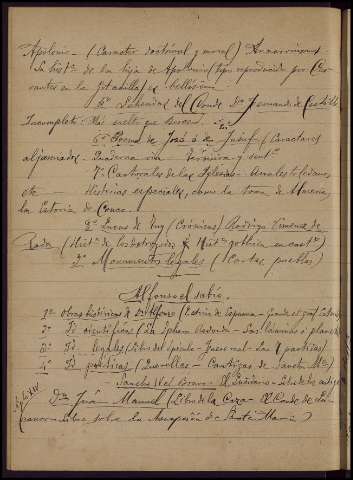 Apolonio — (Caracter doctrinal y moral) Anacronismos
La hist.ª de la hija de Apolonio (tipo reproducido por Cervantes en la Jitanilla) es bellisima.
5º Leyendas del Conde Dn Fernando de Castilla
Incompleto. Más suelto que Berceo.
6º Poema de José ó de Jusuf — (Caracteres
aljamiados. Cuaderna via
7º Cantorales de las Iglesias — Anales toledanos
etc Historias especiales, como la toma de
la Estoria de
2º Lucas de Tuy (Crónicas) Rodrigo Jimenez de
Rada — (Hist.ª de los ostrogodos é Hist.ª gothica en cast.º)
3º Monumentos legales — (Cartas pueblas)
Alfonso el sabio.
1º Obras históricas de Dn Alfonso (Estoria de Espanna — Grande et gral Estoria)
2º Id cientificas (La Sphera redonda — Las
3º Id legales (Libro del Espéculo — Fuero real — Las 7 partidas)
4º Id poéticas (Querellas — Cantigas de Santa Mª)
Sancho IV el Bravo — El Lucidario — Libro de los castigos
Siglo XIV
Dn Juan Manuel (Libro de la Caza — El Conde de Lu-
canor — Libro sobre la Asunción de Santa Maria)